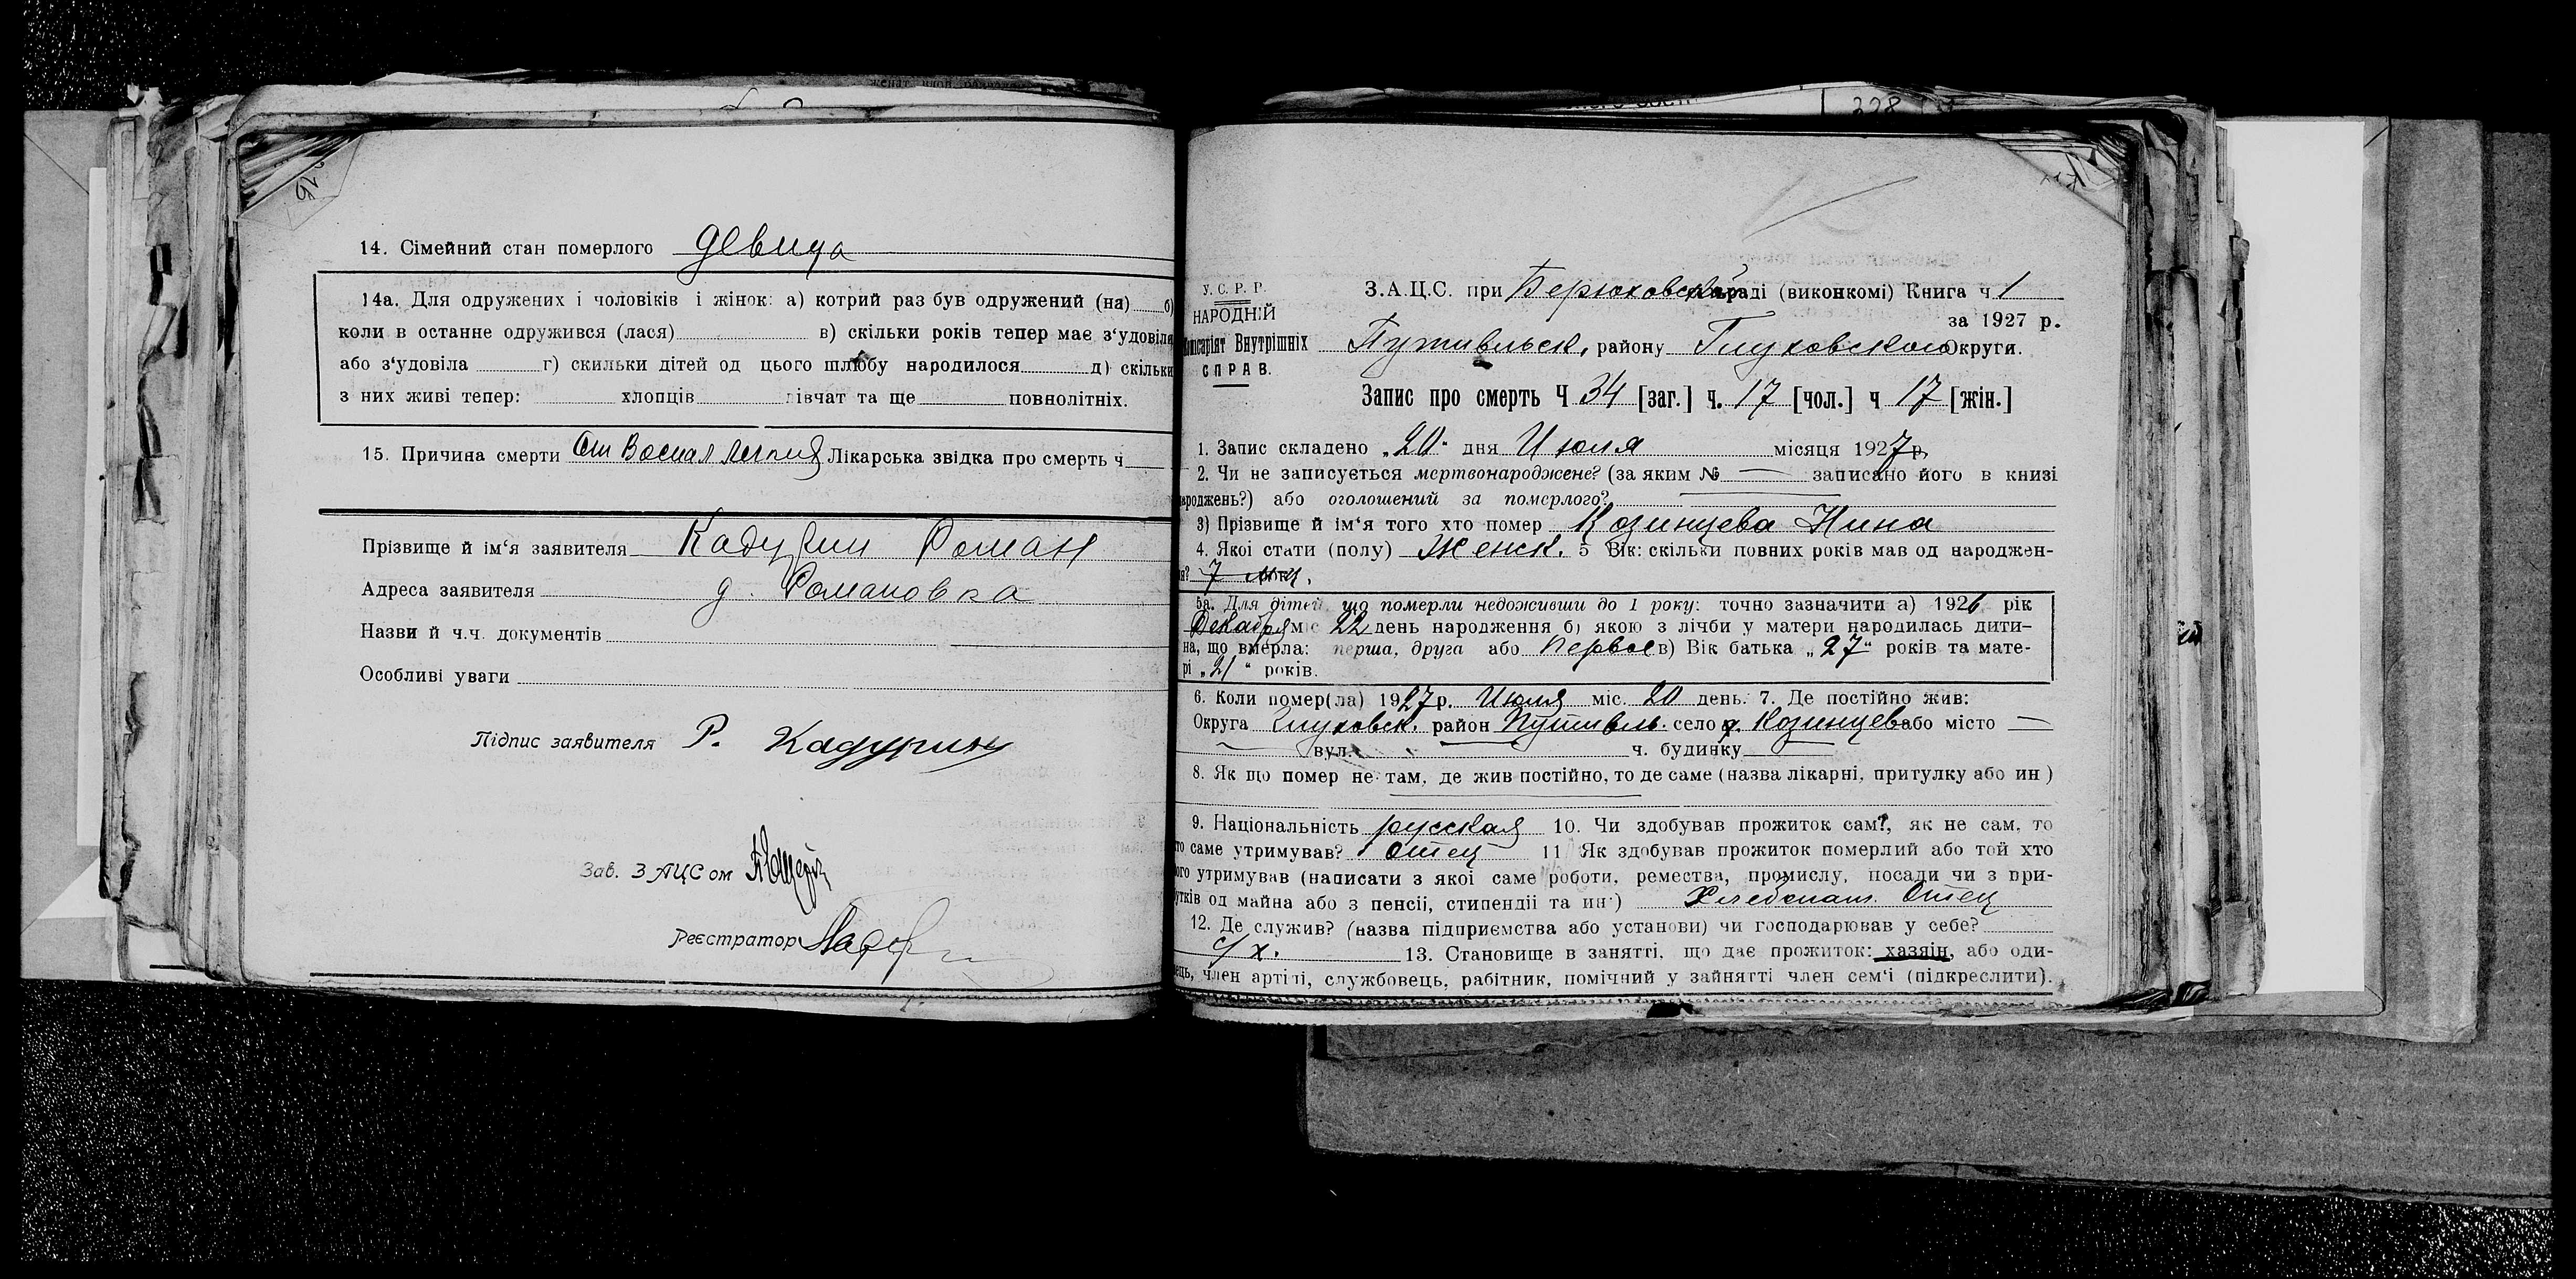 14. Сімейний стан померлого девица
14а. Для одружених і чоловіків і жінок: а) котрий раз був одружений (на) б)
коли в останне одружився (лася) в) скільки років тепер має з‘удовіла
або з‘удовіла г) скильки дітей од цього шлюбу народилося д) скільки
з них живі тепер: хлопців дівчат та ще повнолітніх.
15. Причина смерти От Воспаления Лікарська звідка про смерть ч
Прізвище й ім‘я заявителя Кадурин Роман
Адреса заявителя д. Романовка
Назви й ч.ч. документів
Особливі уваги
Підпис заявителя Р. Кадурин
Зав. ЗАЦСом
Реєстратор
328
У. С. Р. Р.
НАРОДНІЙ
Комісаріят Внутрішніх
СПРАВ.
З.А.Ц.С. при Берюховской раді (виконкомі) Книга ч 1
за 1927 р.
Путивльск, району Глуховского Округи.
Запис про смерть Ч 34 [заг.] ч. 17 [чол.] ч 17 [жін.]
1. Запис складено „20“ дня Июля місяця 1927 р
2. Чи не записується мертвонароджене? (за яким № — записано його в книзі
народжень?) або оголошений за померлого?
3) Прізвище й ім‘я того хто помер Козинцева Нина
4. Якої стати (полу) Женск. 5 Вік: скільки повних років мав од народжен-
ня? 7 мц.
5а. Для дітей що померли недоживши до 1 року: точно зазначити а) 1926 рік
Декабря міс 22 день народження б) якою з лічби у матери народилась дити-
на, що вмерла: перша, друга або Первое в) Вік батька „27“ років та мате-
рі „21“ років.
6. Коли помер(ла) 1927 р. Июля міс. 20 день. 7. Де постійно жив:
Округа Глуховск. район Путивль. село д. Козинцево або місто —
вул. ч. будинку
8. Як що помер не там, де жив постійно, то де саме (назва лікарні, притулку або ин)
9. Національність русская 10. Чи здобував прожиток сам?, як не сам, то
хто саме утримував? отец 11 Як здобував прожиток померлий або той хто
його утримував (написати з якої саме роботи, ремества, промислу, посади чи з при-
бутків од майна або з пенсії, стипендії та ин) Хлебопаш. Отец
12. Де служив? (назва підприємства або установи) чи господарював у себе?
с/х. 13. Становище в занятті, що дає прожиток: хазяін, або оди-
нець, член артілі, службовець, рабітник, помічний у зайнятті член сем‘і (підкреслити).